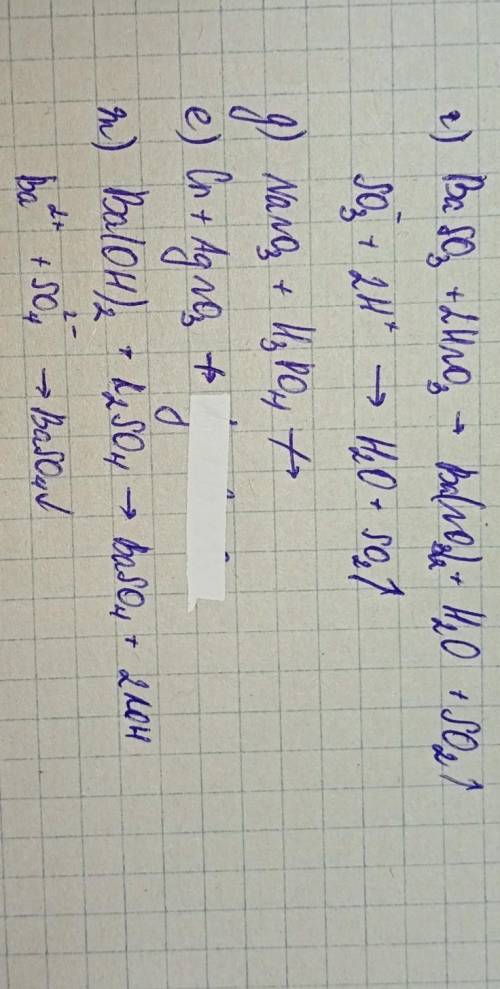 г) BaSO₃ + 2HNO₃ → Ba(NO₃)₂ + H₂O + SO₂↑
SO₃⁻ + 2H⁺ → H₂O + SO₂↑
д) NaNO₃ + H₃PO₄ ↛
е) Cn + AgNO₃ ↛
Ba(OH)₂ + K₂SO₄ → BaSO₄ + 2KOH
Ba²⁺ + SO₄²⁻ → BaSO₄↓